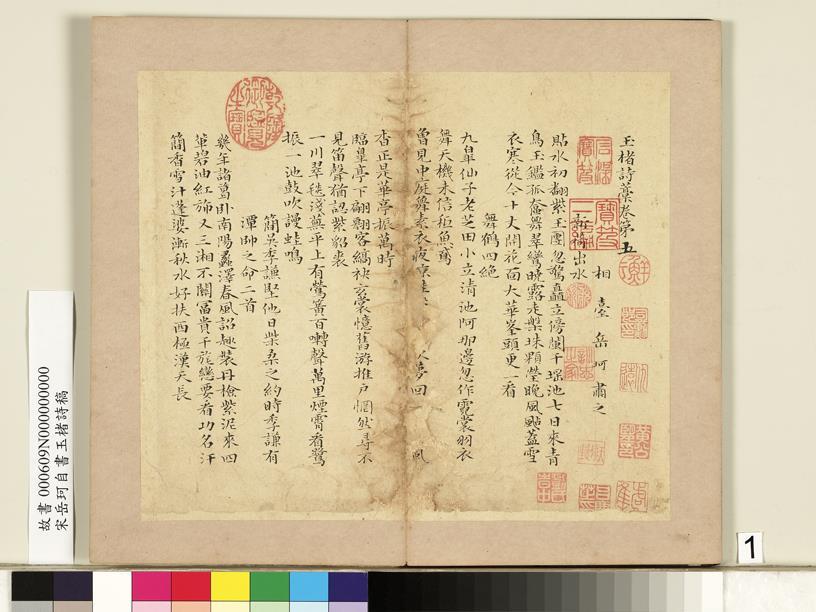 玉楮詩藁卷第五
相臺岳珂肅之
新荷出水
貼水初翻紫玉團忽驚矗立傍闌干瑶池七日來青
鳥玉鑑孤奩舞翠鸞曉露走槃珠顆瑩晚風颭蓋雪
衣寒從今十丈開花面太華峯頭更一看
舞鶴四絶
九臯仙子老芝田小立清池阿那邊忽作霓裳羽衣
舞天機未信秪魚鳶
曾見中庭舞素衣夜涼 夢回 風
杳正是華亭振萬時
臨臯亭下翩翻客縞袂玄裳憶舊游推戶惘然尋不
見笛聲猶認紫貂裘
一川翠毯淺蕪平上有鶯簧百囀聲萬里煙霄看鷺
振一池鼓吹謾蛙鳴
簡吳季謙堅他日柴桑之約時季謙有
潭帥之命二首
幾年諸葛卧南陽蠡澤春風詔趣裝丹檢紫泥來四
輩碧油紅斾又三湘不關富貴千旄戀要看功名汗
簡香雪汁蓬婆漸秋水好扶西極漢天長
故書 000609N000000000
宋岳珂自書玉楮詩稿
1